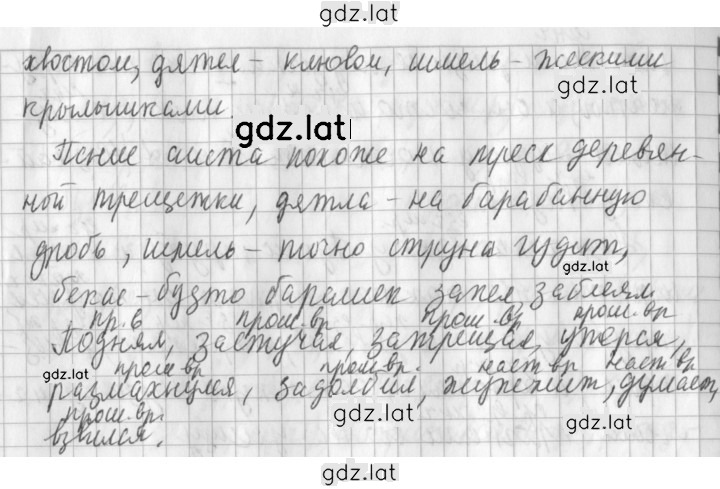 gdz.lat
хвостом, дятел - клювом, шмель - жескими
gdz.lat
крылышками.
gdz.lat
Пение аиста похоже на треск деревян-
ной трещетки, дятла - на барабанную
дробь, шмель - точно струна гудит,
gdz.lat
бекас - будто барашек запел, заблеял.
пр. в прош. вр прош. вр прош. вр
Поднял, застучал, затрещал, уперся,
gdz.lat
прош вр прош. вр. наст вр наст. вр
размахнулся, задолбил, жужжит, думает,
gdz.lat gdz.lat
прош. вр.
взвился.
gdz.lat